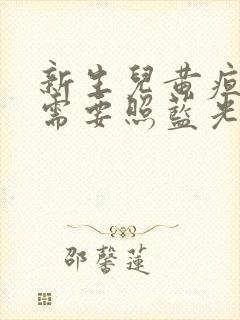 新生兒黃疸
需要照藍光
邵馨蓮